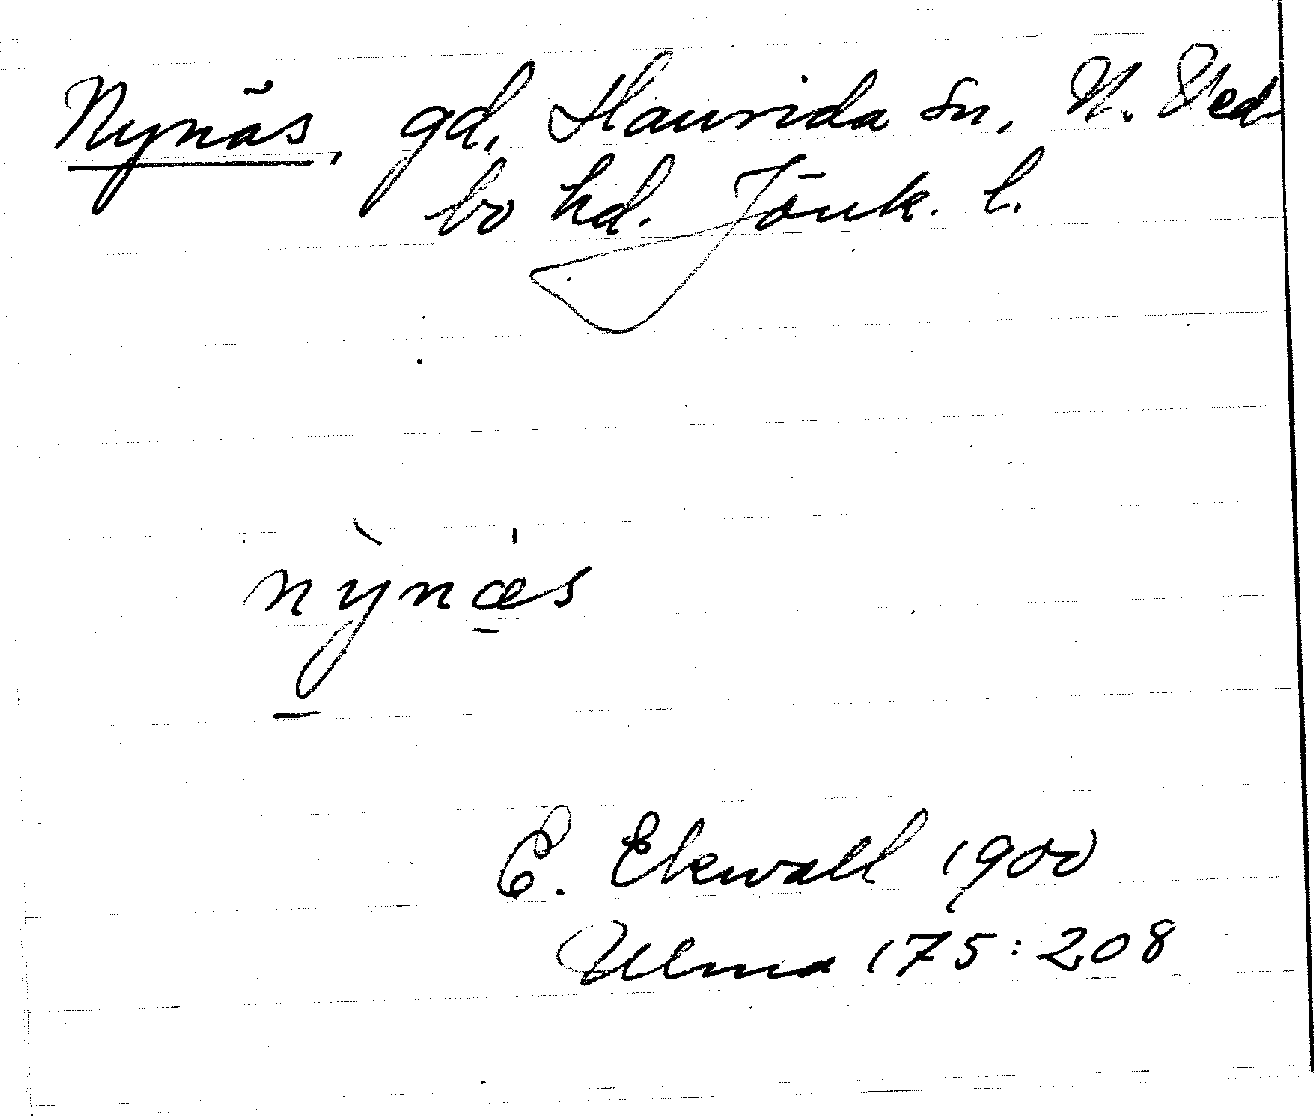 Nynäs, gd, Haurida sn, N. Ved-
bo hd. Jönk. l.
nỳnæ̠s
E. Ekwall 1900
Ulma 175:208